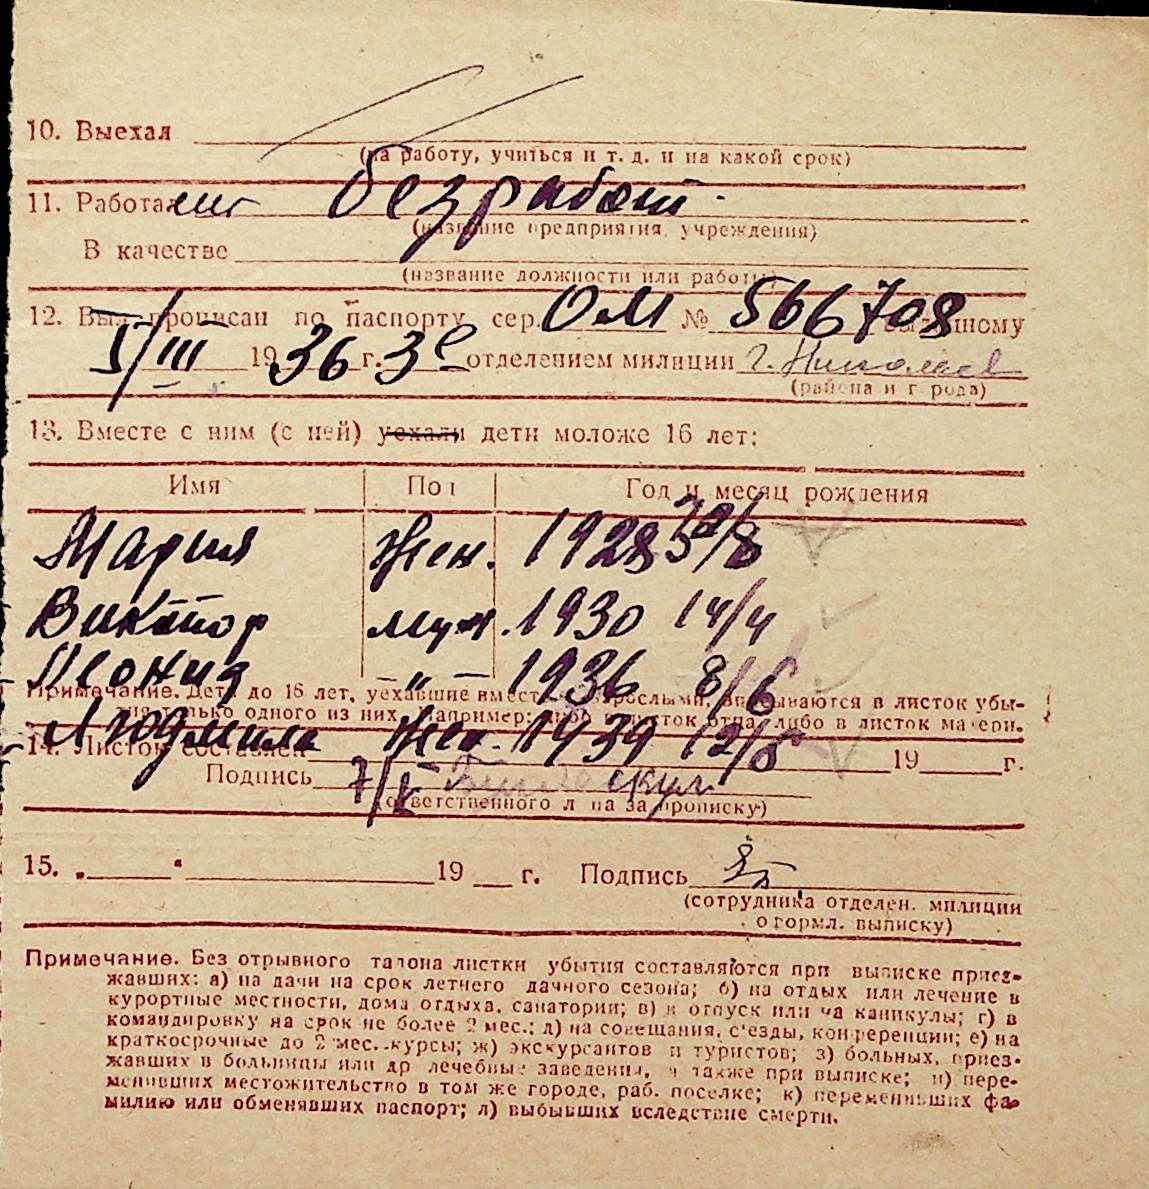 10. Выехал
(на работу, учиться и т. д. и на какой срок)
11. Работал безработ.
(название предприятия, учреждения)
В качестве
(название должности или работы)
12. Был прописан по паспорту сер. ОМ № 566708 выданному
1936 г. 3е отделением милиции г. Николаев
(района и города)
13. Вместе с ним (с ней) уехали дети моложе 16 лет:
Имя Пол Год и месяц рождения
Мария Жен. 1928
Виктор муж. 1930 14/4
Леонид —"— 1936 8/6
Примечание. Дети до 16 лет, уехавшие вместе взрослыми, вписываются в листок убы-
тия только одного из них. Например: либо листок отца, либо в листок матери.
Людмила Жен. 1939
14. Листок составлен 19 г.
Подпись
(ответственного лица за прописку)
15. „ “ 19 г. Подпись
(сотрудника отделен. милиции
оформл. выписку)
Примечание. Без отрывного талона листки убытия составляются при выписке приез-
жавших: а) на дачи на срок летнего дачного сезона; б) на отдых или лечение в
курортные местности, дома отдыха, санатории; в) в отпуск или на каникулы; г) в
командировку на срок не более 2 мес.; д) на совещания, с'езды, конференции; е) на
краткосрочные до 2 мес. курсы; ж) экскурсантов и туристов; з) больных, приез-
жавших в больницы или др лечебные заведения, а также при выписке; и) пере-
менивших местожительство в том же городе, раб. поселке; к) переменивших фа-
милию или обменявших паспорт; л) выбывших вследствие смерти.